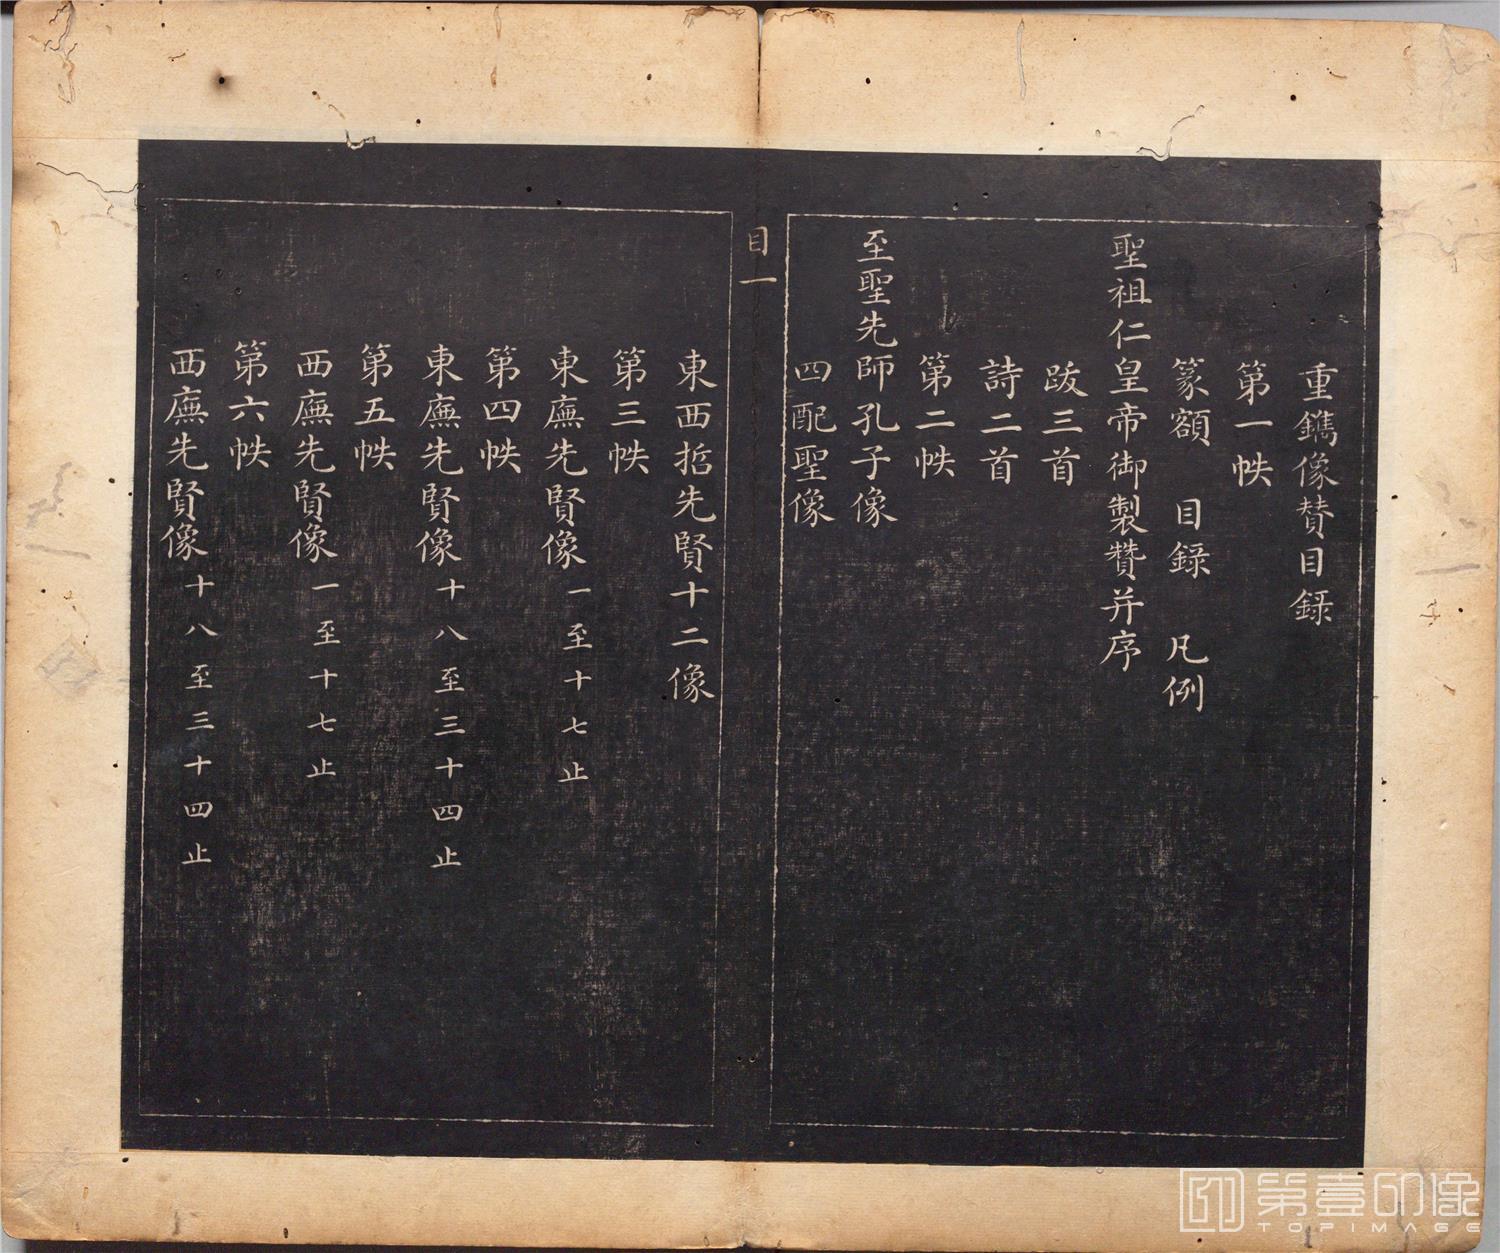 重鐫像賛目錄
第一帙
篆額　目錄　凡例
聖祖仁皇帝御製贊并序
跋三首
詩二首
第二帙
至聖先師孔子像
四配聖像
目一
東西哲先賢十二像
第三帙
東廡先賢像一至十七止
第四帙
東廡先賢像十八至三十四止
第五帙
西廡先賢像一至十七止
第六帙
西廡先賢像十八至三十四止
第壹印像
TOPIMAGE